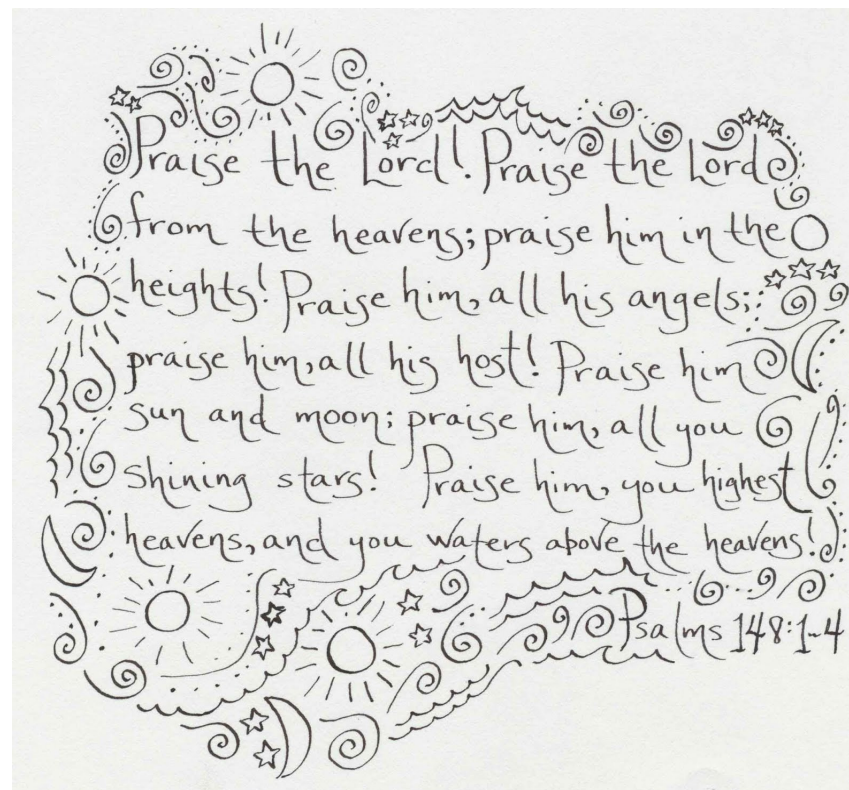 Praise the Lord! Praise the Lord
from the heavens; praise him in the
heights! Praise him, all his angels;
praise him, all his host! Praise him
sun and moon; praise him, all you
shining stars! Praise him, you highest
heavens, and you waters above the heavens!
Psalms 148:1-4